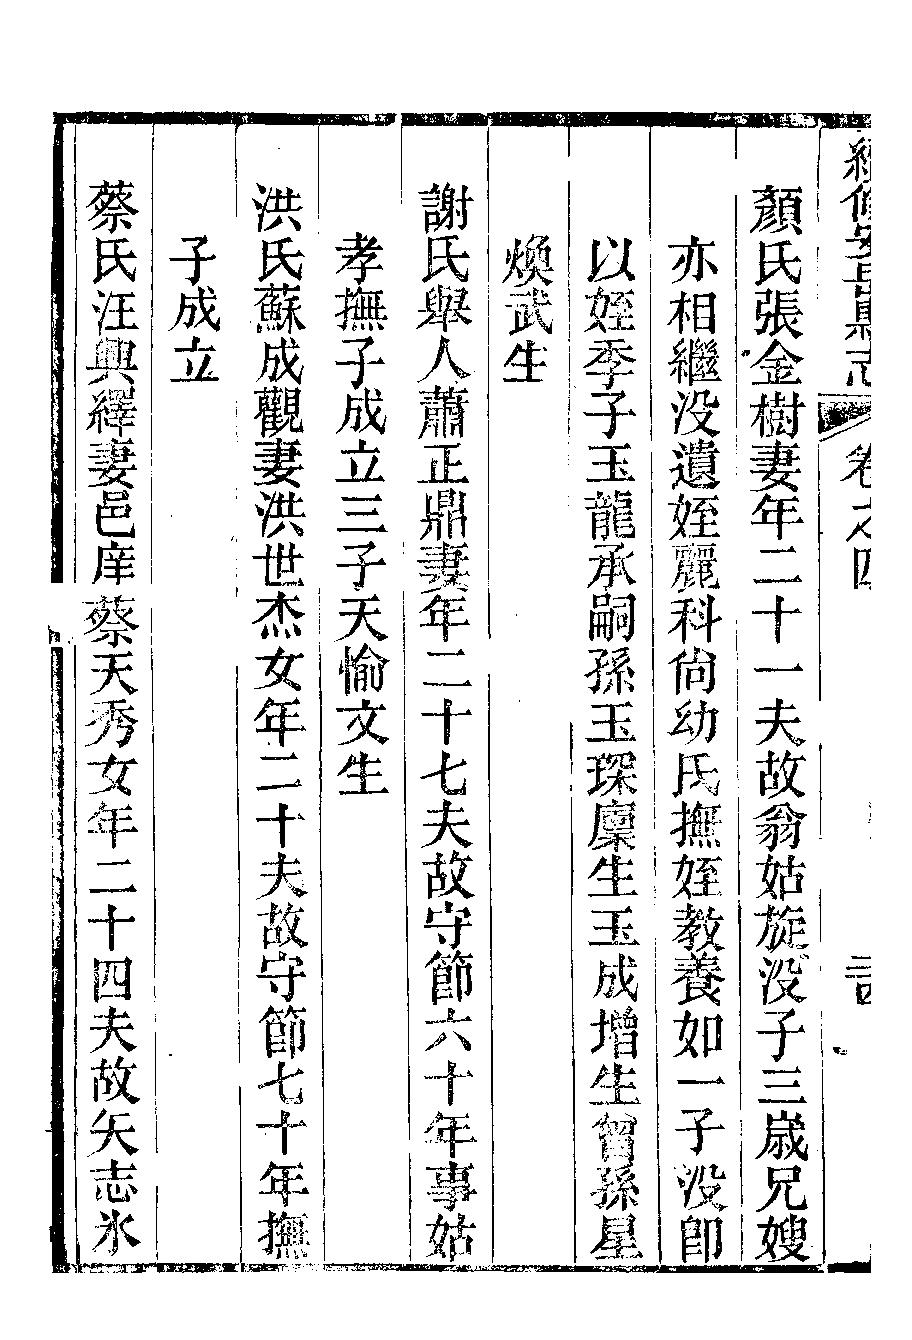 續修安岳縣志　卷之四
顏氏張金樹妻年二十一夫故翁姑旋没子三歲兄嫂
亦相繼没遺姪麗科尙幼氏撫姪教養如一子没卽
以姪季子玉龍承嗣孫玉琛廩生玉成增生曾孫星
煥武生
謝氏舉人蕭正鼎妻年二十七夫故守節六十年事姑
孝撫子成立三子天愉文生
洪氏蘇成觀妻洪世杰女年二十夫故守節七十年撫
子成立
蔡氏汪興繹妻邑庠蔡天秀女年二十四夫故矢志氷